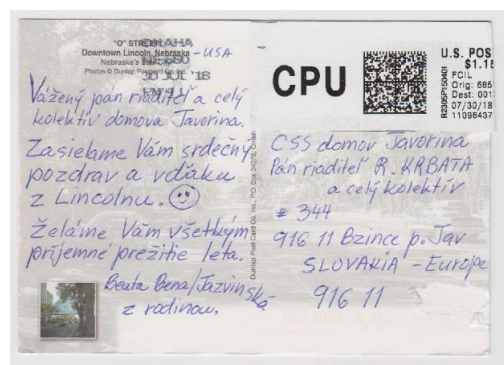 "O" STREET
Downtown Lincoln, Nebraska - USA
Nebraska's
Photos © Dunlap Postcard Co. Inc.
OMAHA
30 JUL '18
Vážený pán riaditeľ a celý
kolektív domova Javorina.
Zasielame Vám srdečný
pozdrav a vďaku
z Lincolnu.
Želáme Vám všetkým
príjemné prežitie leta.
Beata Bena/Jazvinská
z rodinou.
Dunlap Post Card Co., Inc., P.O. Box 34075, Omaha
CPU
U.S. POS
$1.15
FCIL
Orig: 685
Dest: 001
07/30/18
11096437
R2305P150401
CSS domov Javorina
Pán riaditeľ R. KRBATA
a celý kolektív
# 344
916 11 Bzince p. Jav
SLOVAKIA - Europe
916 11